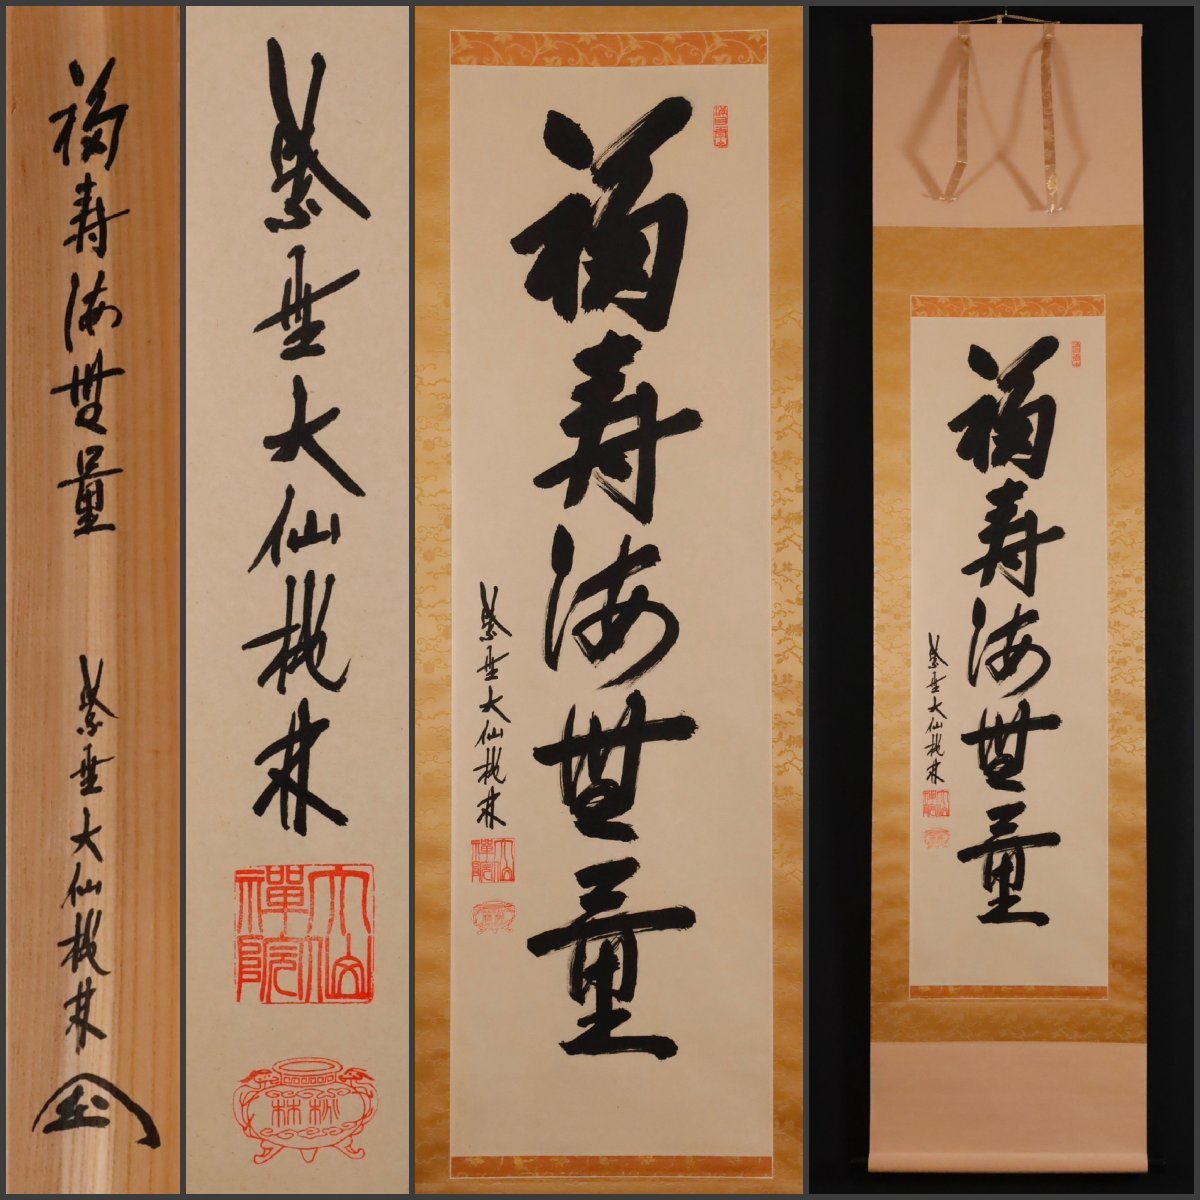 福寿海無量
紫野大仙桃林
紫野大仙桃林
大仙
禅院
桃林
福寿海無量
紫野大仙桃林
大仙
禅院
福寿海無量
紫野大仙桃林